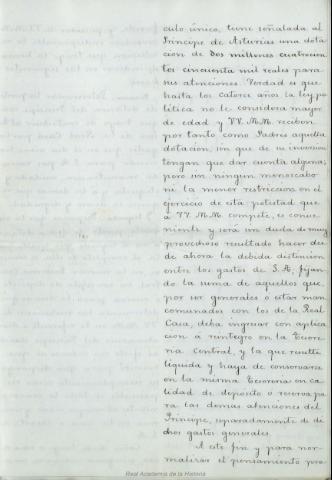 culo único, tiene señalada al
Príncipe de Asturias una dota
cion de dos millones cuatrocien
tos cincuenta mil reales para
sus atenciones. Verdad es que
hasta los catorce años la ley po
lítica no le considera mayor
de edad y VV. MM. reciben
por tanto como Padres aquella
dotacion, sin que de su inversion
tengan que dar cuenta alguna;
pero sin ningun menoscabo
ni la menor restriccion en el
ejercicio de esta potestad que
á VV. MM. compete, es conve
niente y será sin duda de muy
provechoso resultado hacer des
de ahora la debida distincion
entre los gastos de S. A. fijan
do la suma de aquellos que
por ser generales o estar man
comunados con los de la Real
Casa, deba ingresar con aplica
cion a reintegro en la Tesore
ria Central, y la que resulte
líquida y haya de conservarse
en la misma Tesoreria en ca
lidad de depósito o reserva pa
ra las demas atenciones del
Príncipe, separadamente de di
chos gastos generales.
A este fin y para for
malizar el pensamiento pro
Real Academia de la Historia